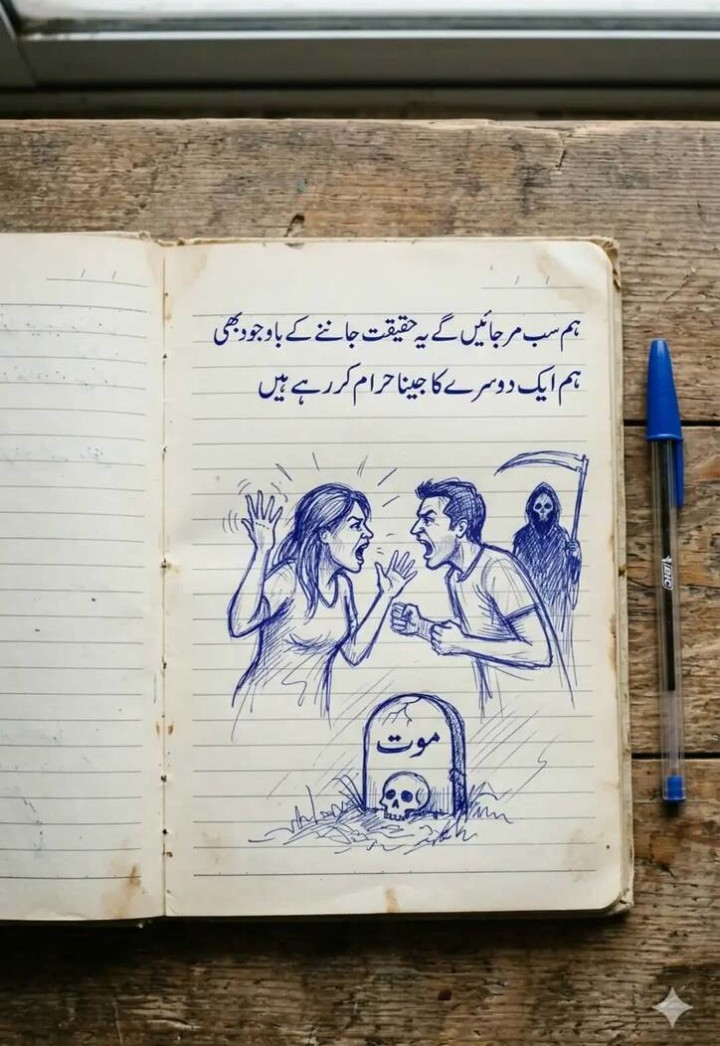 ہم سب مر جائیں گے یہ حقیقت جاننے کے باوجود بھی
ہم ایک دوسرے کا جینا حرام کر رہے ہیں
موت
BIC